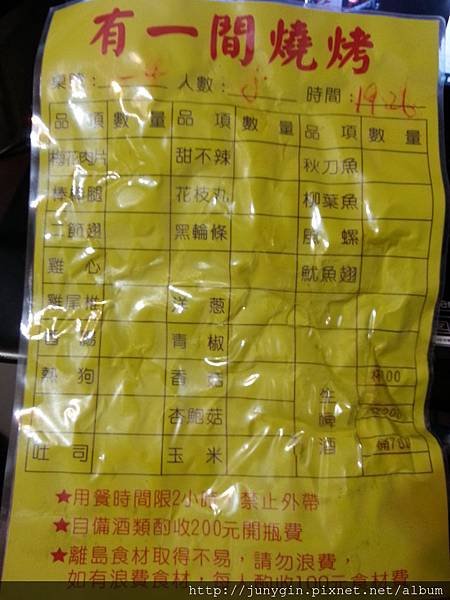 有一間燒烤
桌號： 人數： 時間：19:26
品項 數量 品項 數量 品項 數量
梅花肉片 甜不辣 秋刀魚
棒棒腿 花枝丸 柳葉魚
二節翅 黑輪條 鳳螺
雞心 魷魚翅
雞尾椎 洋蔥
香腸 青椒
熱狗 香菇 生啤酒
杏鮑菇
吐司 玉米
★用餐時間限2小時，禁止外帶
★自備酒類酌收200元開瓶費
★離島食材取得不易，請勿浪費，
如有浪費食材，每人酌收100元食材費
http://junygin.pixnet.net/album